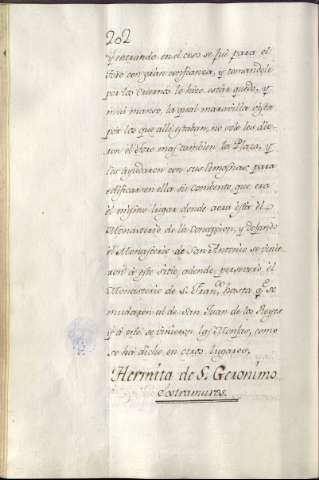 202
y entrando en el coso se fué para el
toro con gran confianza, y tomandole
por los cuernos le hizo estár quedo, y
mui manso, la qual maravilla vista
por los que alli estaban, no solo les die-
ron el toro mas tambien la Plaza, y
les ayudaron con sus limosnas para
edificar en ella su combento, que era
el mismo lugar donde aora está el
Monasterio de la concepcion, y dejando
el Monasterio de San Antonio se vinie-
ron à este sitio, adonde permanecio el
Monasterio de S. Fran.co hasta q.e se
mudaron al de San Juan de los Reyes
y à este se vinieron las Monjas, como
se ha dicho en otros lugares.
Hermita de S. Geronimo
extramuros.